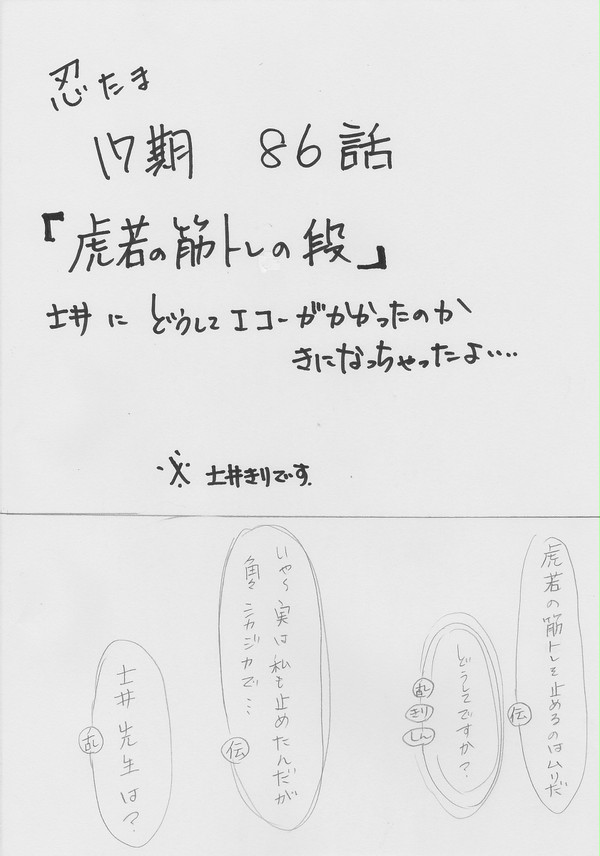 忍たま
17期 86話
「虎若の筋トレの段」
土井に どうしてエコーがかかったのか
きになっちゃったよ‥‥
※ 土井きりです。
虎若の筋トレを止めるのはムリだ
伝
どうしてですか?
乱
きり
しん
いや〜実は私も止めたんだが
カジカで…
伝
土井先生は?
乱